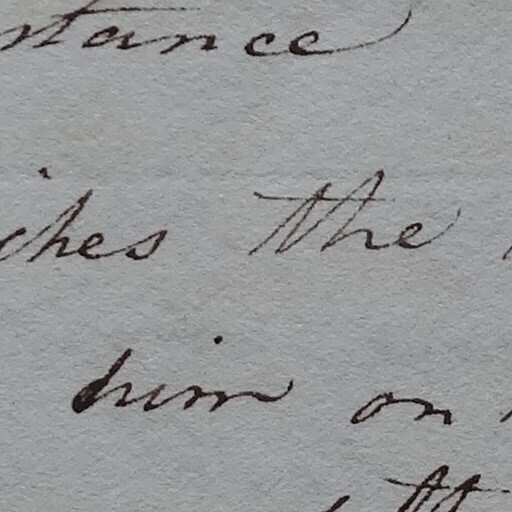 stance
ches the
him on